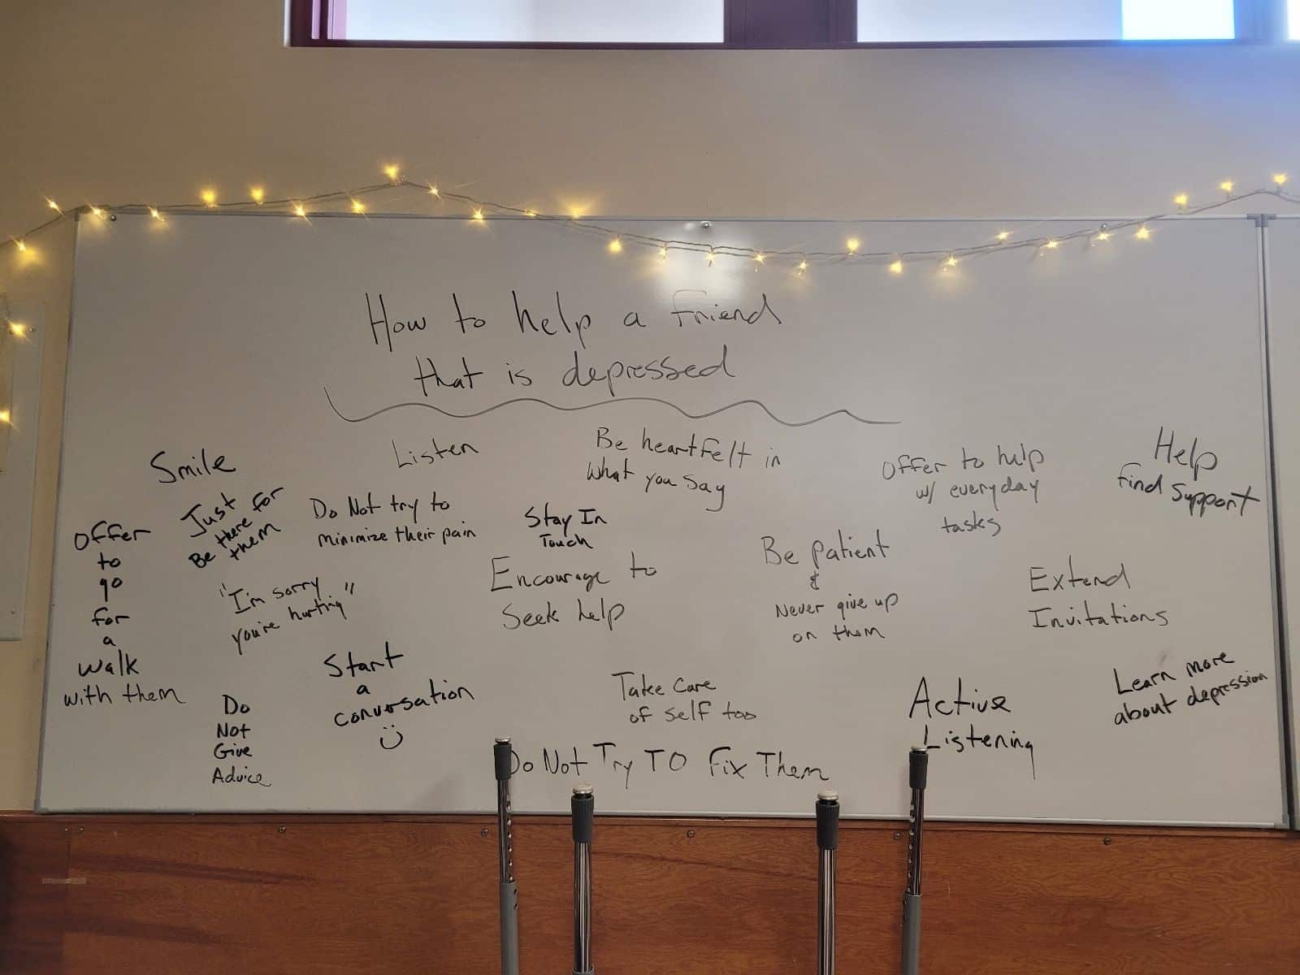 How to help a friend
that is depressed
Smile
Listen
Be heartfelt in
what you say
Offer to help
w/ everyday
tasks
Help
find support
Offer
to
go
for
a
walk
with them
Just
Be there for
them
Do Not try to
minimize their pain
Stay In
Touch
Be patient
&
Never give up
on them
Encourage to
seek help
Extend
Invitations
"I'm sorry
you're hurting"
Start
a
conversation
Do
Not
Give
Advice
Take care
of self too
Active
Listening
Learn more
about depression
Do Not Try TO Fix Them